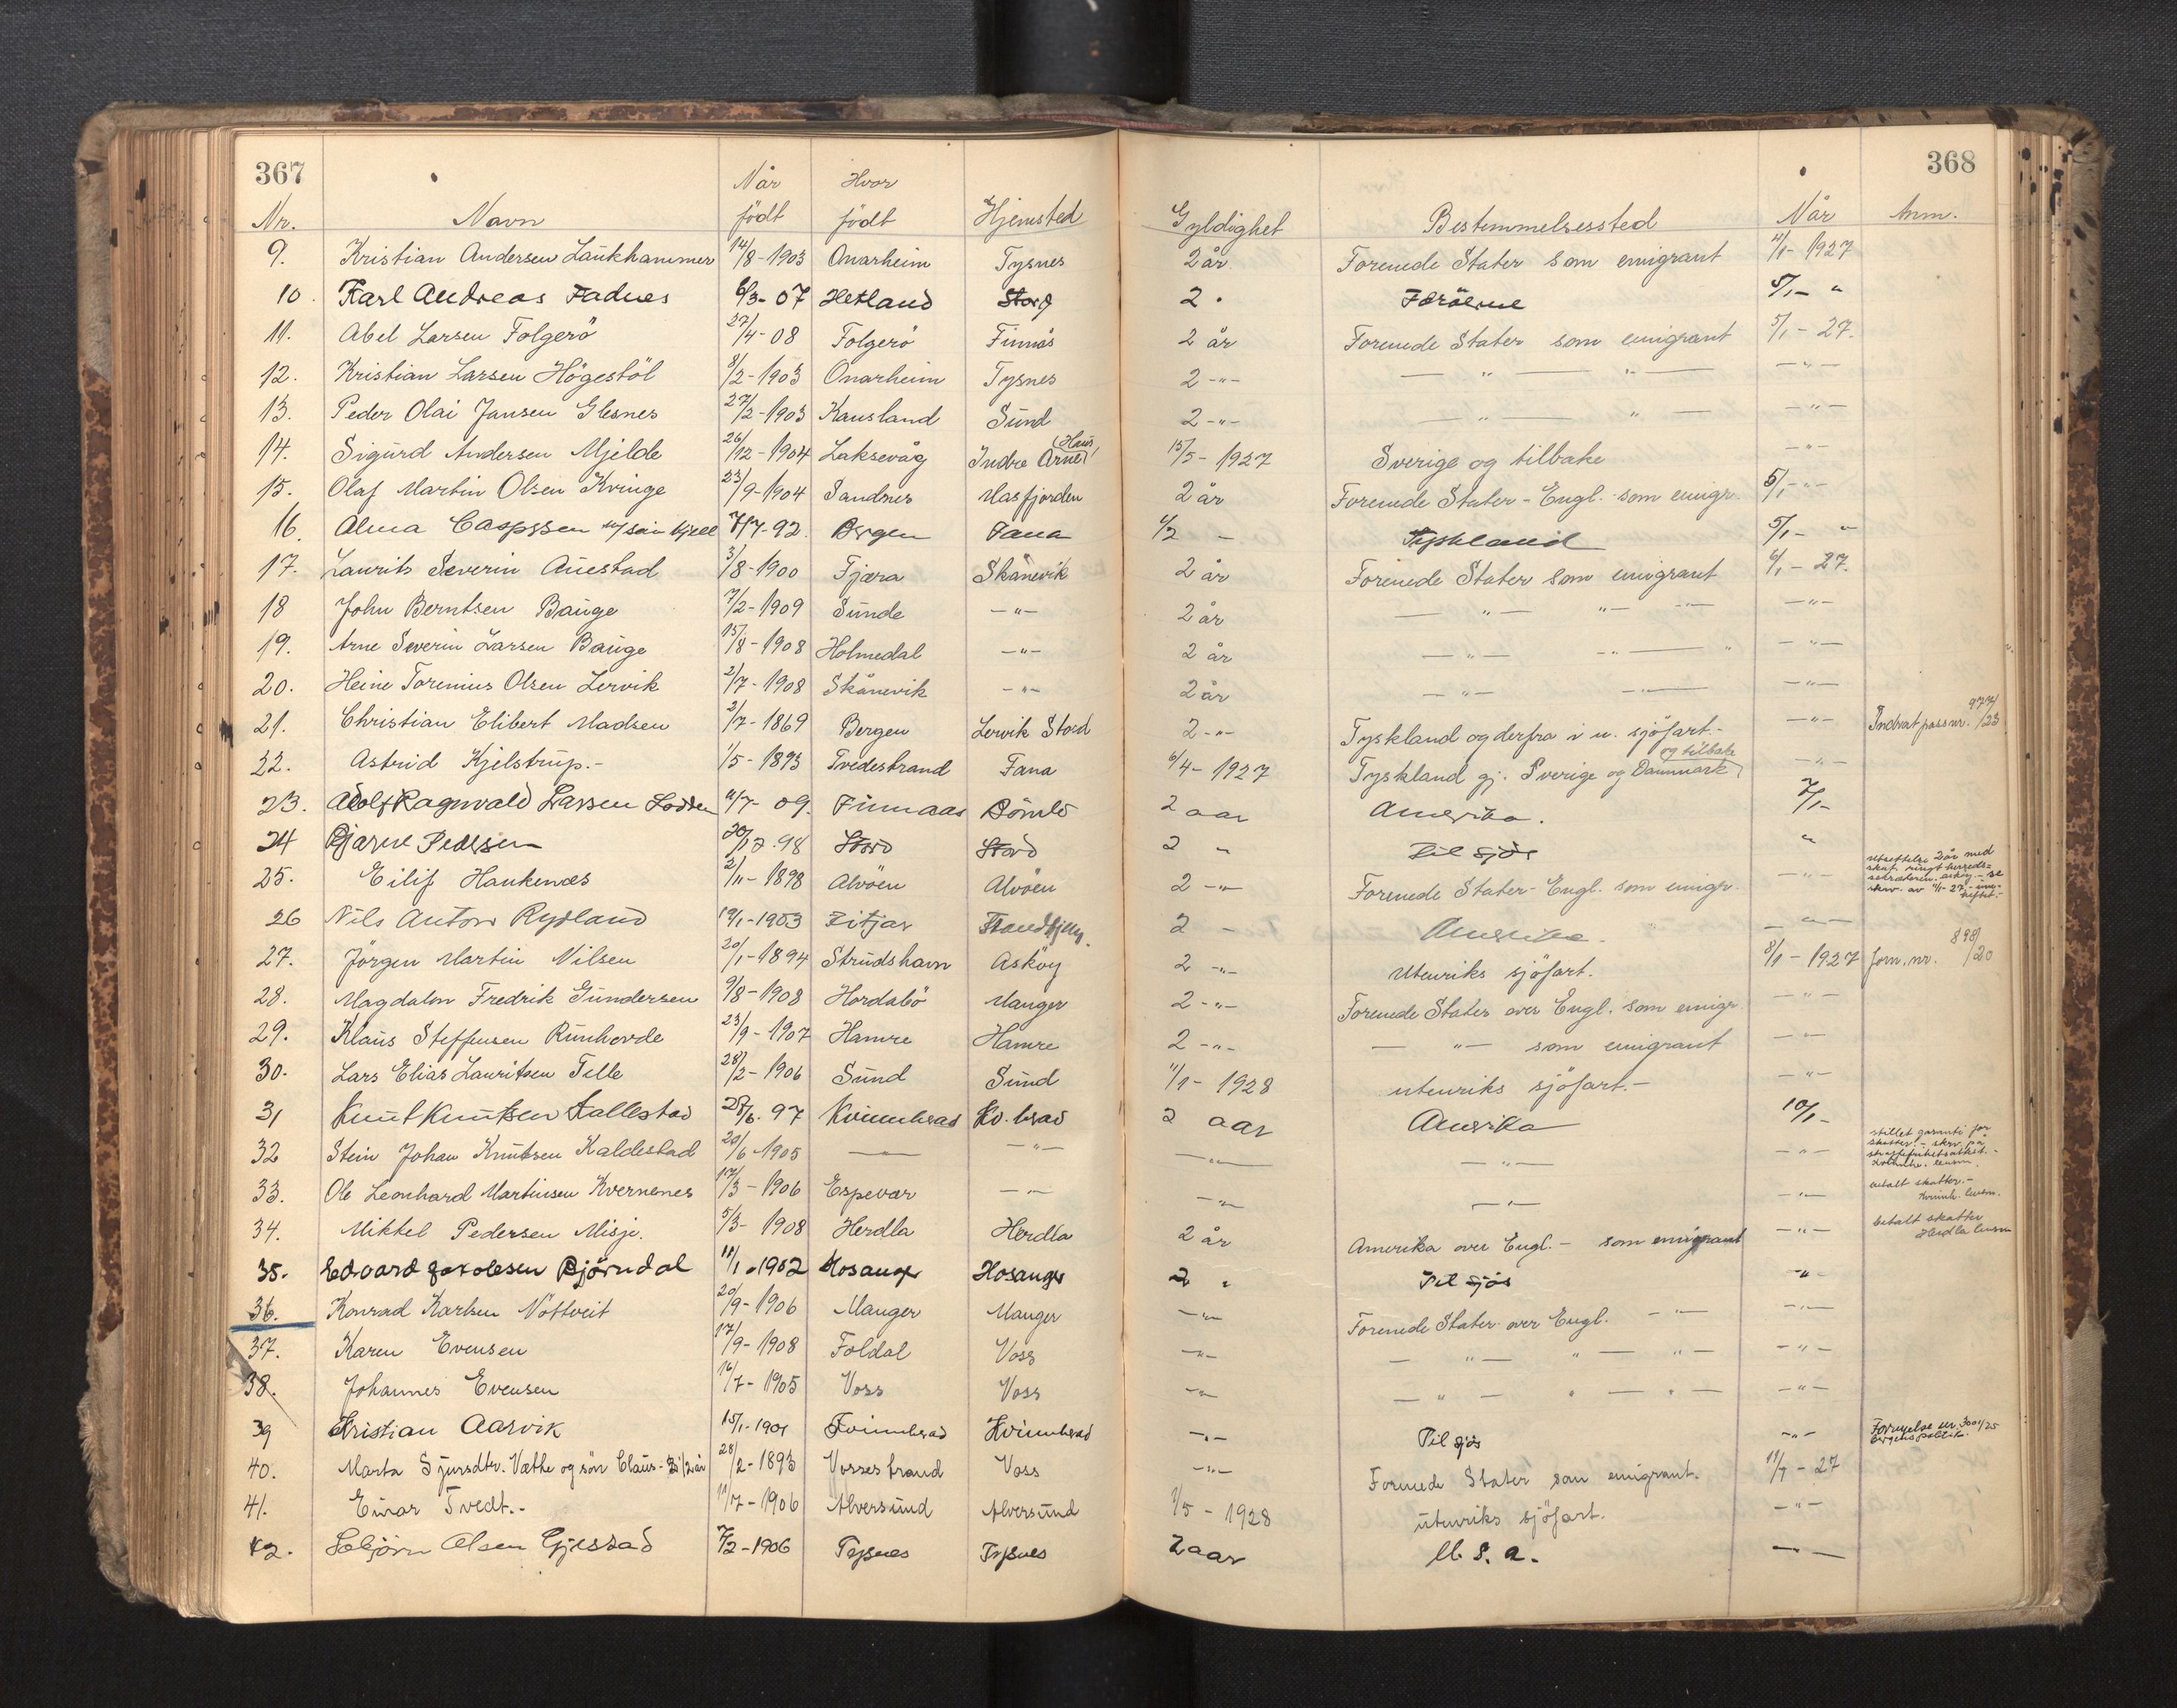 367 368
Når Hvor
Nr. Navn født født Hjemsted Gyldighet Bestemmelsessted Når Anm.
9. Kristian Andersen Laukhammer 14/8-1903 Onarheim Tysnes 2 år Forenede Stater som emigrant 4/1-1927
10. Karl Andreas Fadnes 6/3-07 Hetland Stord 2 " Færöerne 5/1- "
11. Abel Larsen Folgerö 27/4-08 Folgerö Finnås 2 år Forenede Stater som emigrant 5/1-27.
12. Kristian Larsen Högestöl 8/2-1903 Onarheim Tysnes 2 -"- — " — " — -"-
13. Peder Olai Jansen Glesnes 27/2-1903 Kausland Sund 2 -"- — " — " — -"-
14. Sigurd Andersen Mjelde 26/12-1904 Laksevåg Indre Arne (Haus) 15/5-1927 Sverige og tilbake -"-
15. Olaf Martin Olsen Kvinge 23/9-1904 Sandnes Masfjorden 2 år Forenede Stater - Engl. som emigr. 5/1-"-
16. Alma Caspssen m/ sön Kjell 7/7-92. Bergen Fana 1/2 - Tyskland 5/1- "
17. Laurits Severin Auestad 3/8-1900 Fjæra Skånevik 2 år Forenede Stater som emigrant 6/1-27.
18 John Berntsen Bauge 7/2-1909 Sunde -"- 2 år — " — " — -"-
19. Arne Severin Larsen Bauge 15/8-1908 Holmedal -"- 2 år — " — " — " -"-
20. Heine Torenius Olsen Lervik 2/7-1908 Skånevik -"- 2 år — " — " — -"-
21. Christian Elibert Madsen 2/7-1869 Bergen Lervik Stord 2 -"- Tyskland og derfra i u. sjöfart.- -"- Indrat pass nr. 977/23
22. Astrid Kjelstrup.- 1/5-1893 Tvedestrand Fana 6/4-1927 Tyskland gj. Sverige og Danmark og tilbake -"-
23. Adolf Ragnvald Larsen Lodden 11/7-09. Finnaas Bömlo 2 aar Amerika. 7/1-
24 Bjarne Pedersen 20/12.98 Stord Stord 2 " Til sjös "
25. Eilif Haukenæs 2/11-1898 Alvöen Alvöen 2 -"- Forenede Stater - Engl. som emigr. -"- utsettelse 2 år med skat.
26 Nils Anton Rydland 19/1-1903 Fitjar 2 - Amerika. -"-
27. Jörgen Martin Nilsen 20/1-1894 Strudshavn Asköy 2 -"- Utenriks sjöfart. 8/1-1927 forn. nr. 898/20
28. Magdalon Fredrik Gundersen 9/8-1908 Hordabö Manger 2 -"- Forenede Stater over Engl. som emigr. -"-
29. Klaus Steffensen Runhovde 23/9-1907 Hamre Hamre 2 -"- — "— som emigrant -"-
30. Lars Elias Lauritsen Telle 28/2-1906 Sund Sund 11/1-1928 utenriks sjöfart.- -"-
31 Knut Knutsen Kallestad 28/6.97 Kvinnherad Kv.herad 2 aar Amerika 10/1-
32 Stein Johan Knutsen Kaldestad 20/6-1905 — -"- -"- -"- -"- stillet garanti for skatter.-
33. Ole Leonhard Martinsen Kvernenes 17/3-1906 Espevær -"- -"- -"- -"- betalt skatter.- Kvinnh. lensm.
34. Mikkel Pedersen Misje. 5/3-1908 Herdla Herdla 2 år Amerika over Engl. - som emigrant -"- betalt skatter Herdla lensm
35. Edvard Jakobsen Björndal 11/1-1902 Hosanger Hosanger 2 " Til sjös -"-
36. Konrad Karlsen Nöttveit 20/9-1906 Manger Manger -"- Forenede Stater over Engl. -"- -"-
37. Karen Evensen 17/9-1908 Foldal Voss -"- — "— " — "— -"-
38. Johannes Evensen 16/7-1905 Voss Voss -"- — "— " — "— -"-
39 Kristian Aarvik 15/1-1901 Kvinnherad Kvinnherad -"- Til sjös -"- Fornyelse nr. 3001/25 Bergens politik.
40. Marta Sjursdtr. Væthe og sön Claus- 28/2-1893 Vossestrand Voss -"- Forenede Stater som emigrant. 11/1-27
41. Einar Tvedt.- 11/7-1906 Alversund Alversund 1/5-1928 utenriks sjöfart. -"-
42. Olsen Gjerstad 7/2-1906 Tysnes Tysnes 2 aar U.S.A. —